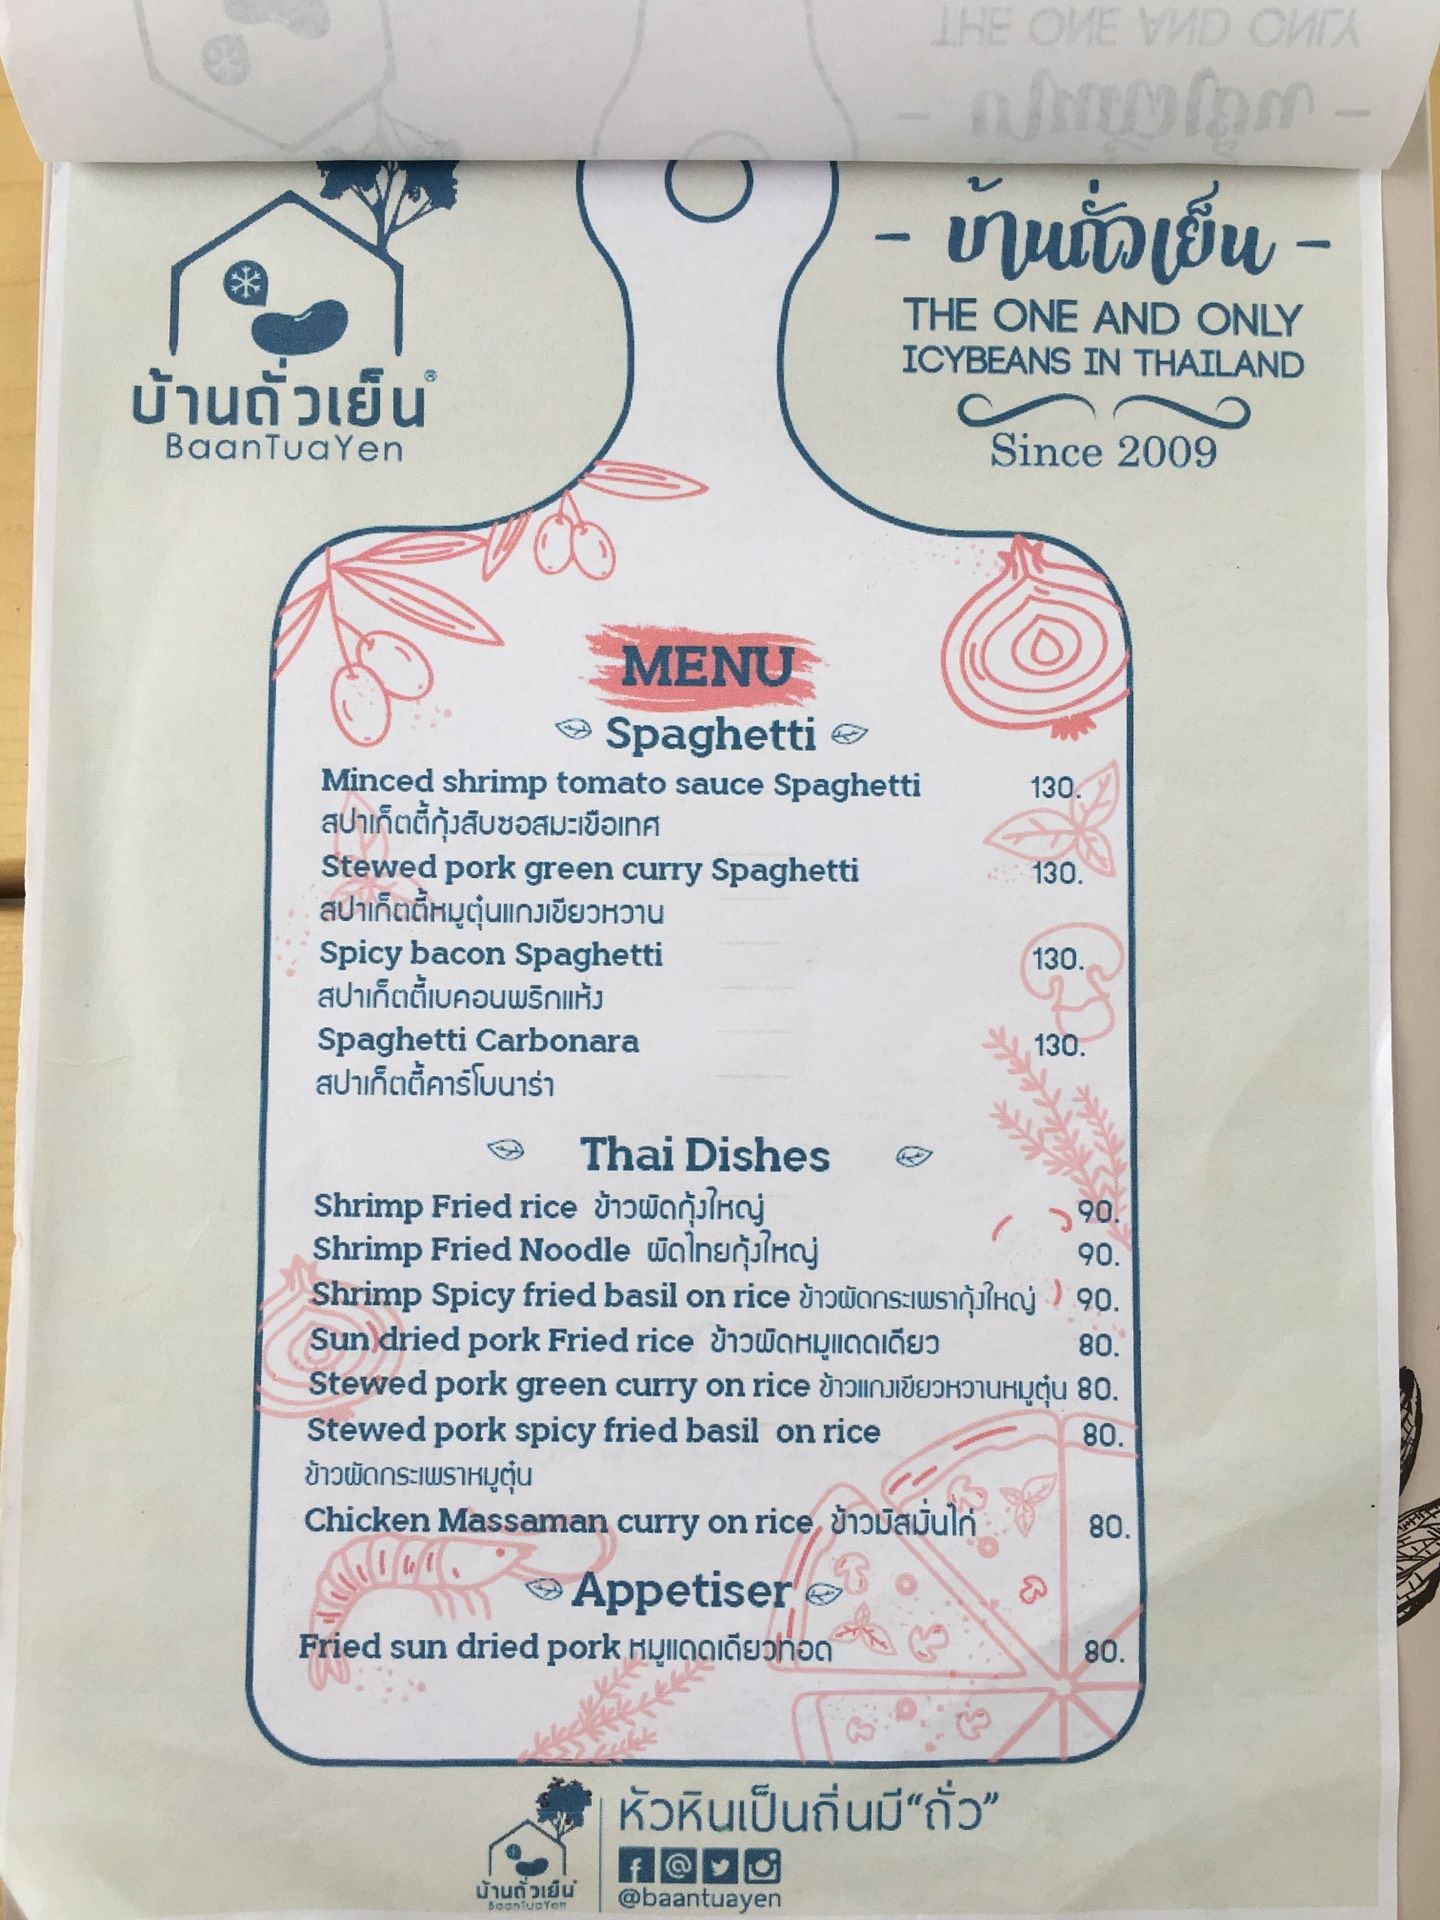 THE ONE AND ONLY
บ้านถั่วเย็น
BaanTuaYen
- บ้านถั่วเย็น -
THE ONE AND ONLY
ICYBEANS IN THAILAND
Since 2009
MENU
Spaghetti
Minced shrimp tomato sauce Spaghetti 130.
สปาเก็ตตี้กุ้งสับซอสมะเขือเทศ
Stewed pork green curry Spaghetti 130.
สปาเก็ตตี้หมูตุ๋นแกงเขียวหวาน
Spicy bacon Spaghetti 130.
สปาเก็ตตี้เบคอนพริกแห้ง
Spaghetti Carbonara 130.
สปาเก็ตตี้คาร์โบนาร่า
Thai Dishes
Shrimp Fried rice ข้าวผัดกุ้งใหญ่ 90.
Shrimp Fried Noodle ผัดไทยกุ้งใหญ่ 90.
Shrimp Spicy fried basil on rice ข้าวผัดกระเพรากุ้งใหญ่ 90.
Sun dried pork Fried rice ข้าวผัดหมูแดดเดียว 80.
Stewed pork green curry on rice ข้าวแกงเขียวหวานหมูตุ๋น 80.
Stewed pork spicy fried basil on rice 80.
ข้าวผัดกระเพราหมูตุ๋น
Chicken Massaman curry on rice ข้าวมัสมั่นไก่ 80.
Appetiser
Fried sun dried pork หมูแดดเดียวทอด 80.
หัวหินเป็นถิ่นมี“ถั่ว”
บ้านถั่วเย็น
BaanTuaYen
@baantuayen